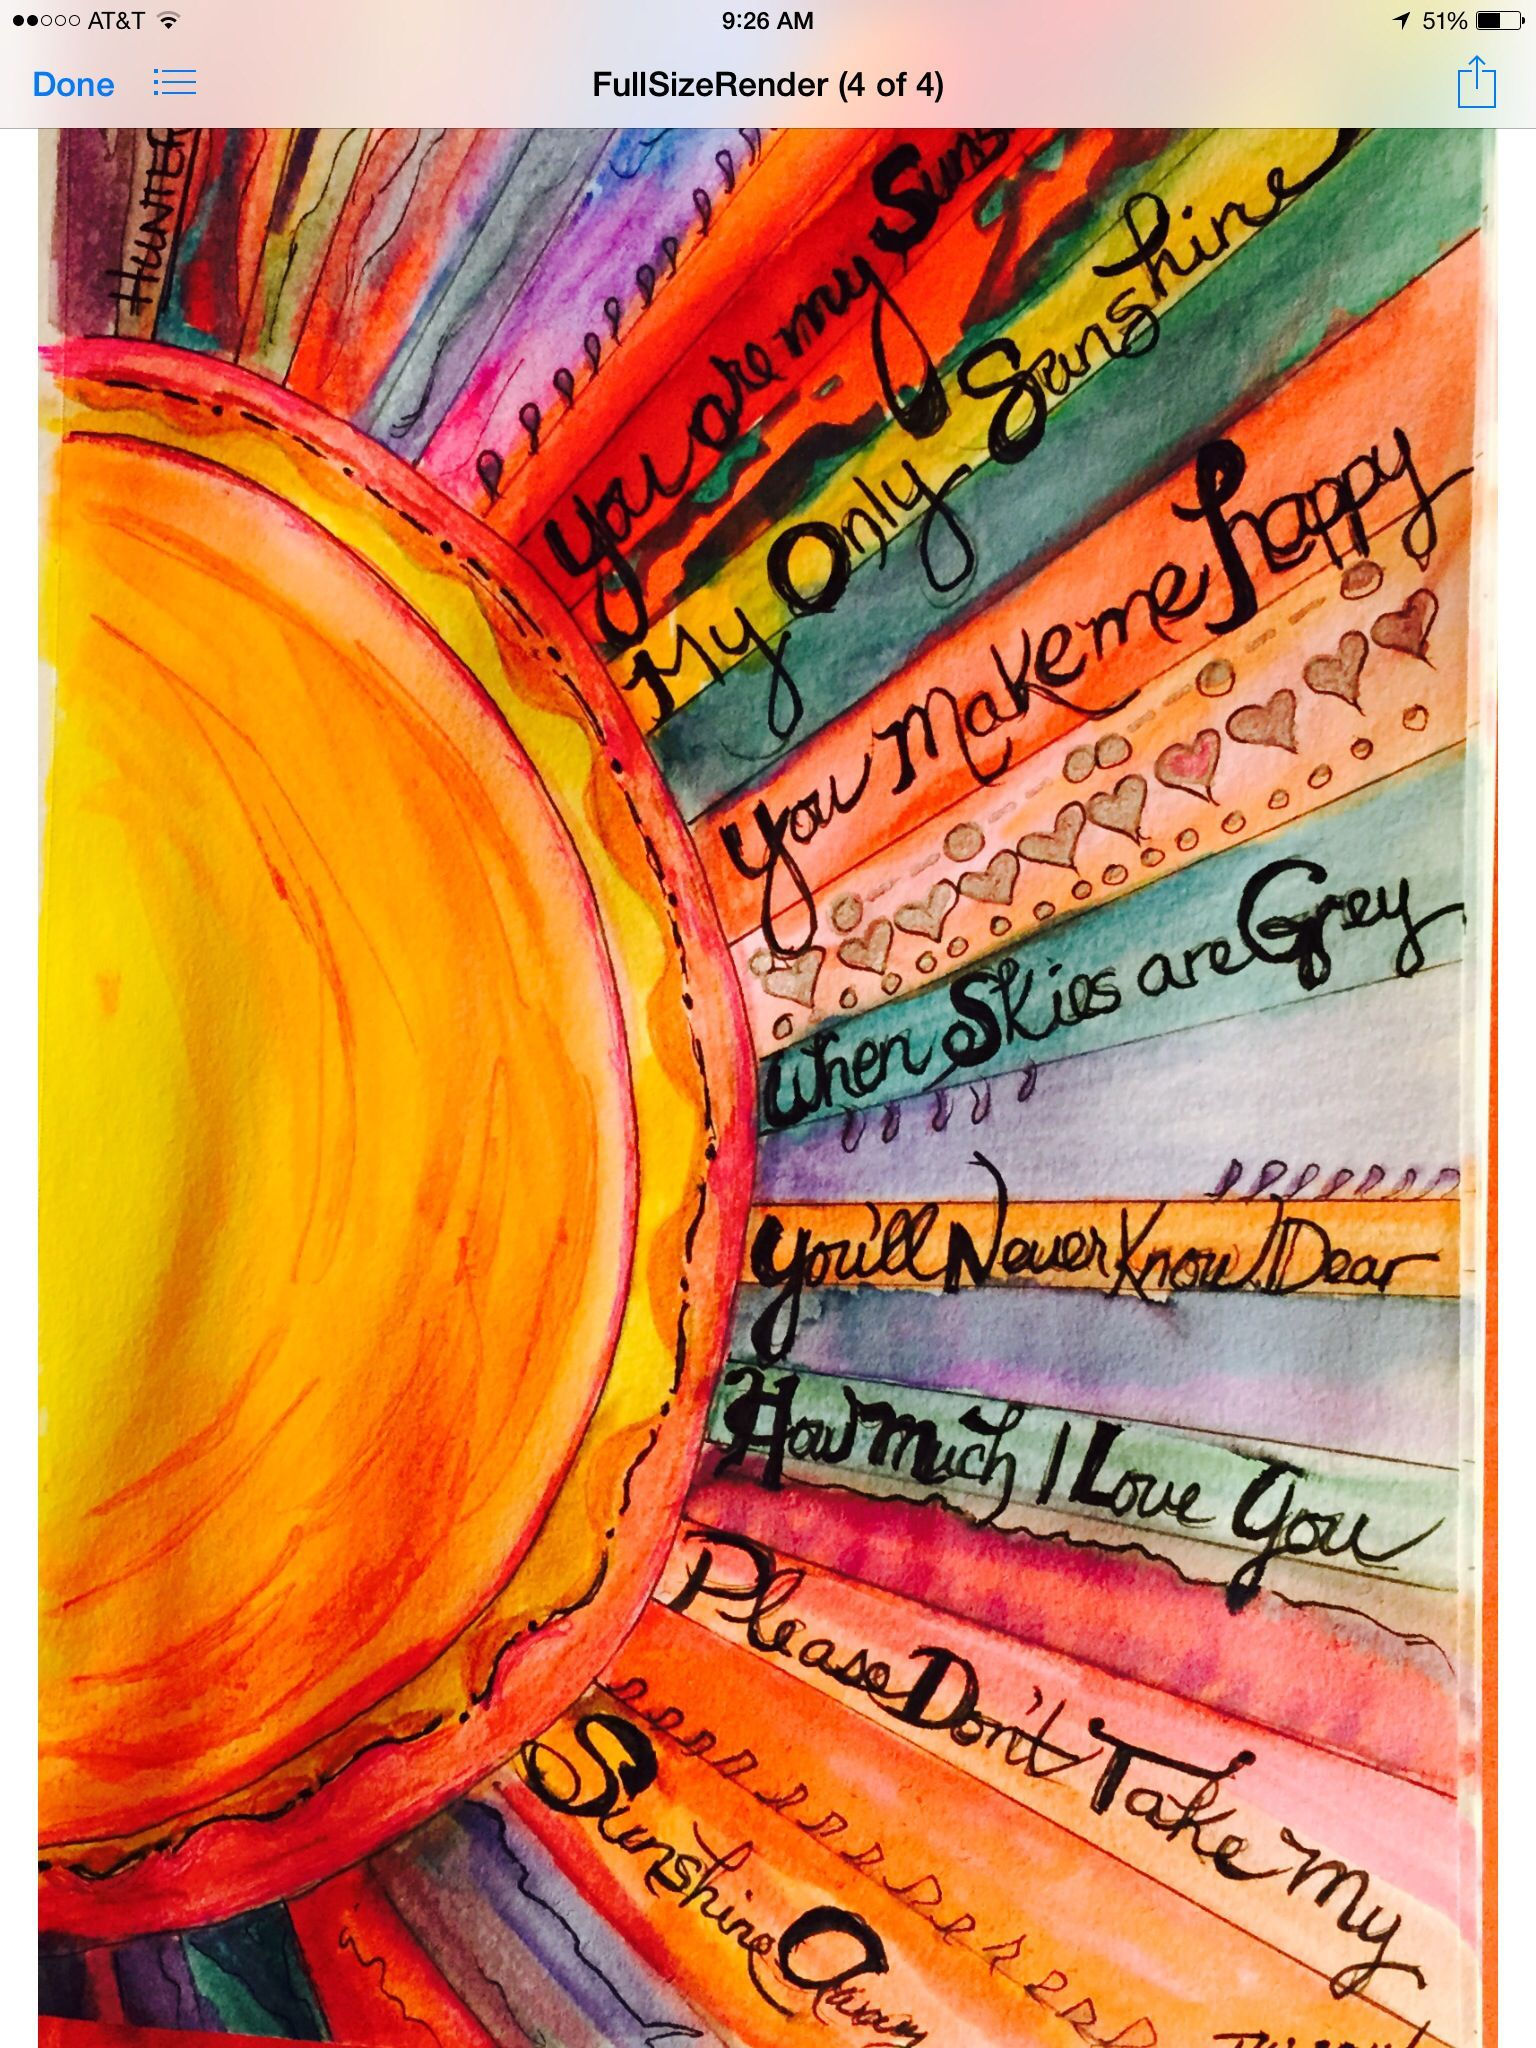 AT&T 9:26 AM 51%
Done FullSizeRender (4 of 4)
HUNTER
You are my Suns
My Only Sunshine
You Make me happy
When Skies are Grey
You'll Never Know Dear
How much I Love You
Please Don't Take my
Sunshine Away